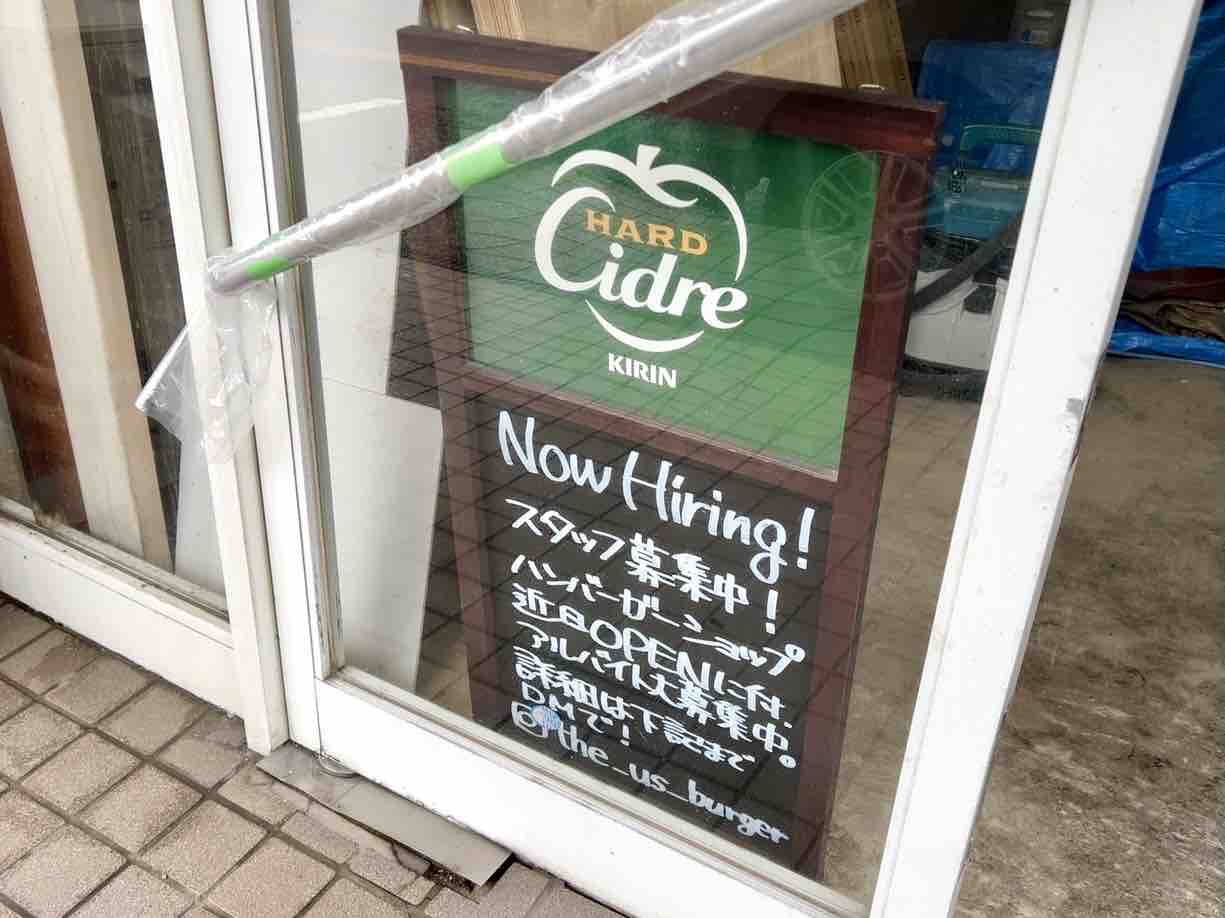 HARD
Cidre
KIRIN
Now Hiring!
スタッフ募集中!
ハンバーガーショップ
近日OPENに付、
アルバイト大募集中。
詳細は下記まで
DMで!
the_us_burger